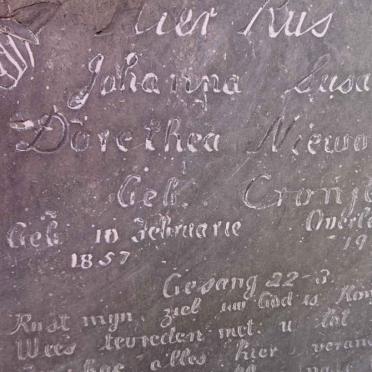 Hier Rus
Johanna Susa
Dorethea Niewo
Geb. Cronje
Geb 10 Februarie Overle
1857 19
Gesang 22-3.
Rust mijn ziel uw God is Kon
Wees tevreden met u lot
alles hier veran